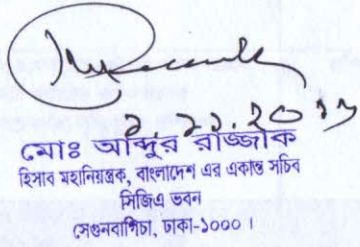 মোঃ আব্দুর রাজ্জাক
হিসাব মহানিয়ন্ত্রক, বাংলাদেশ এর একান্ত সচিব
সিজিএ ভবন
সেগুনবাগিচা, ঢাকা-১০০০ ।